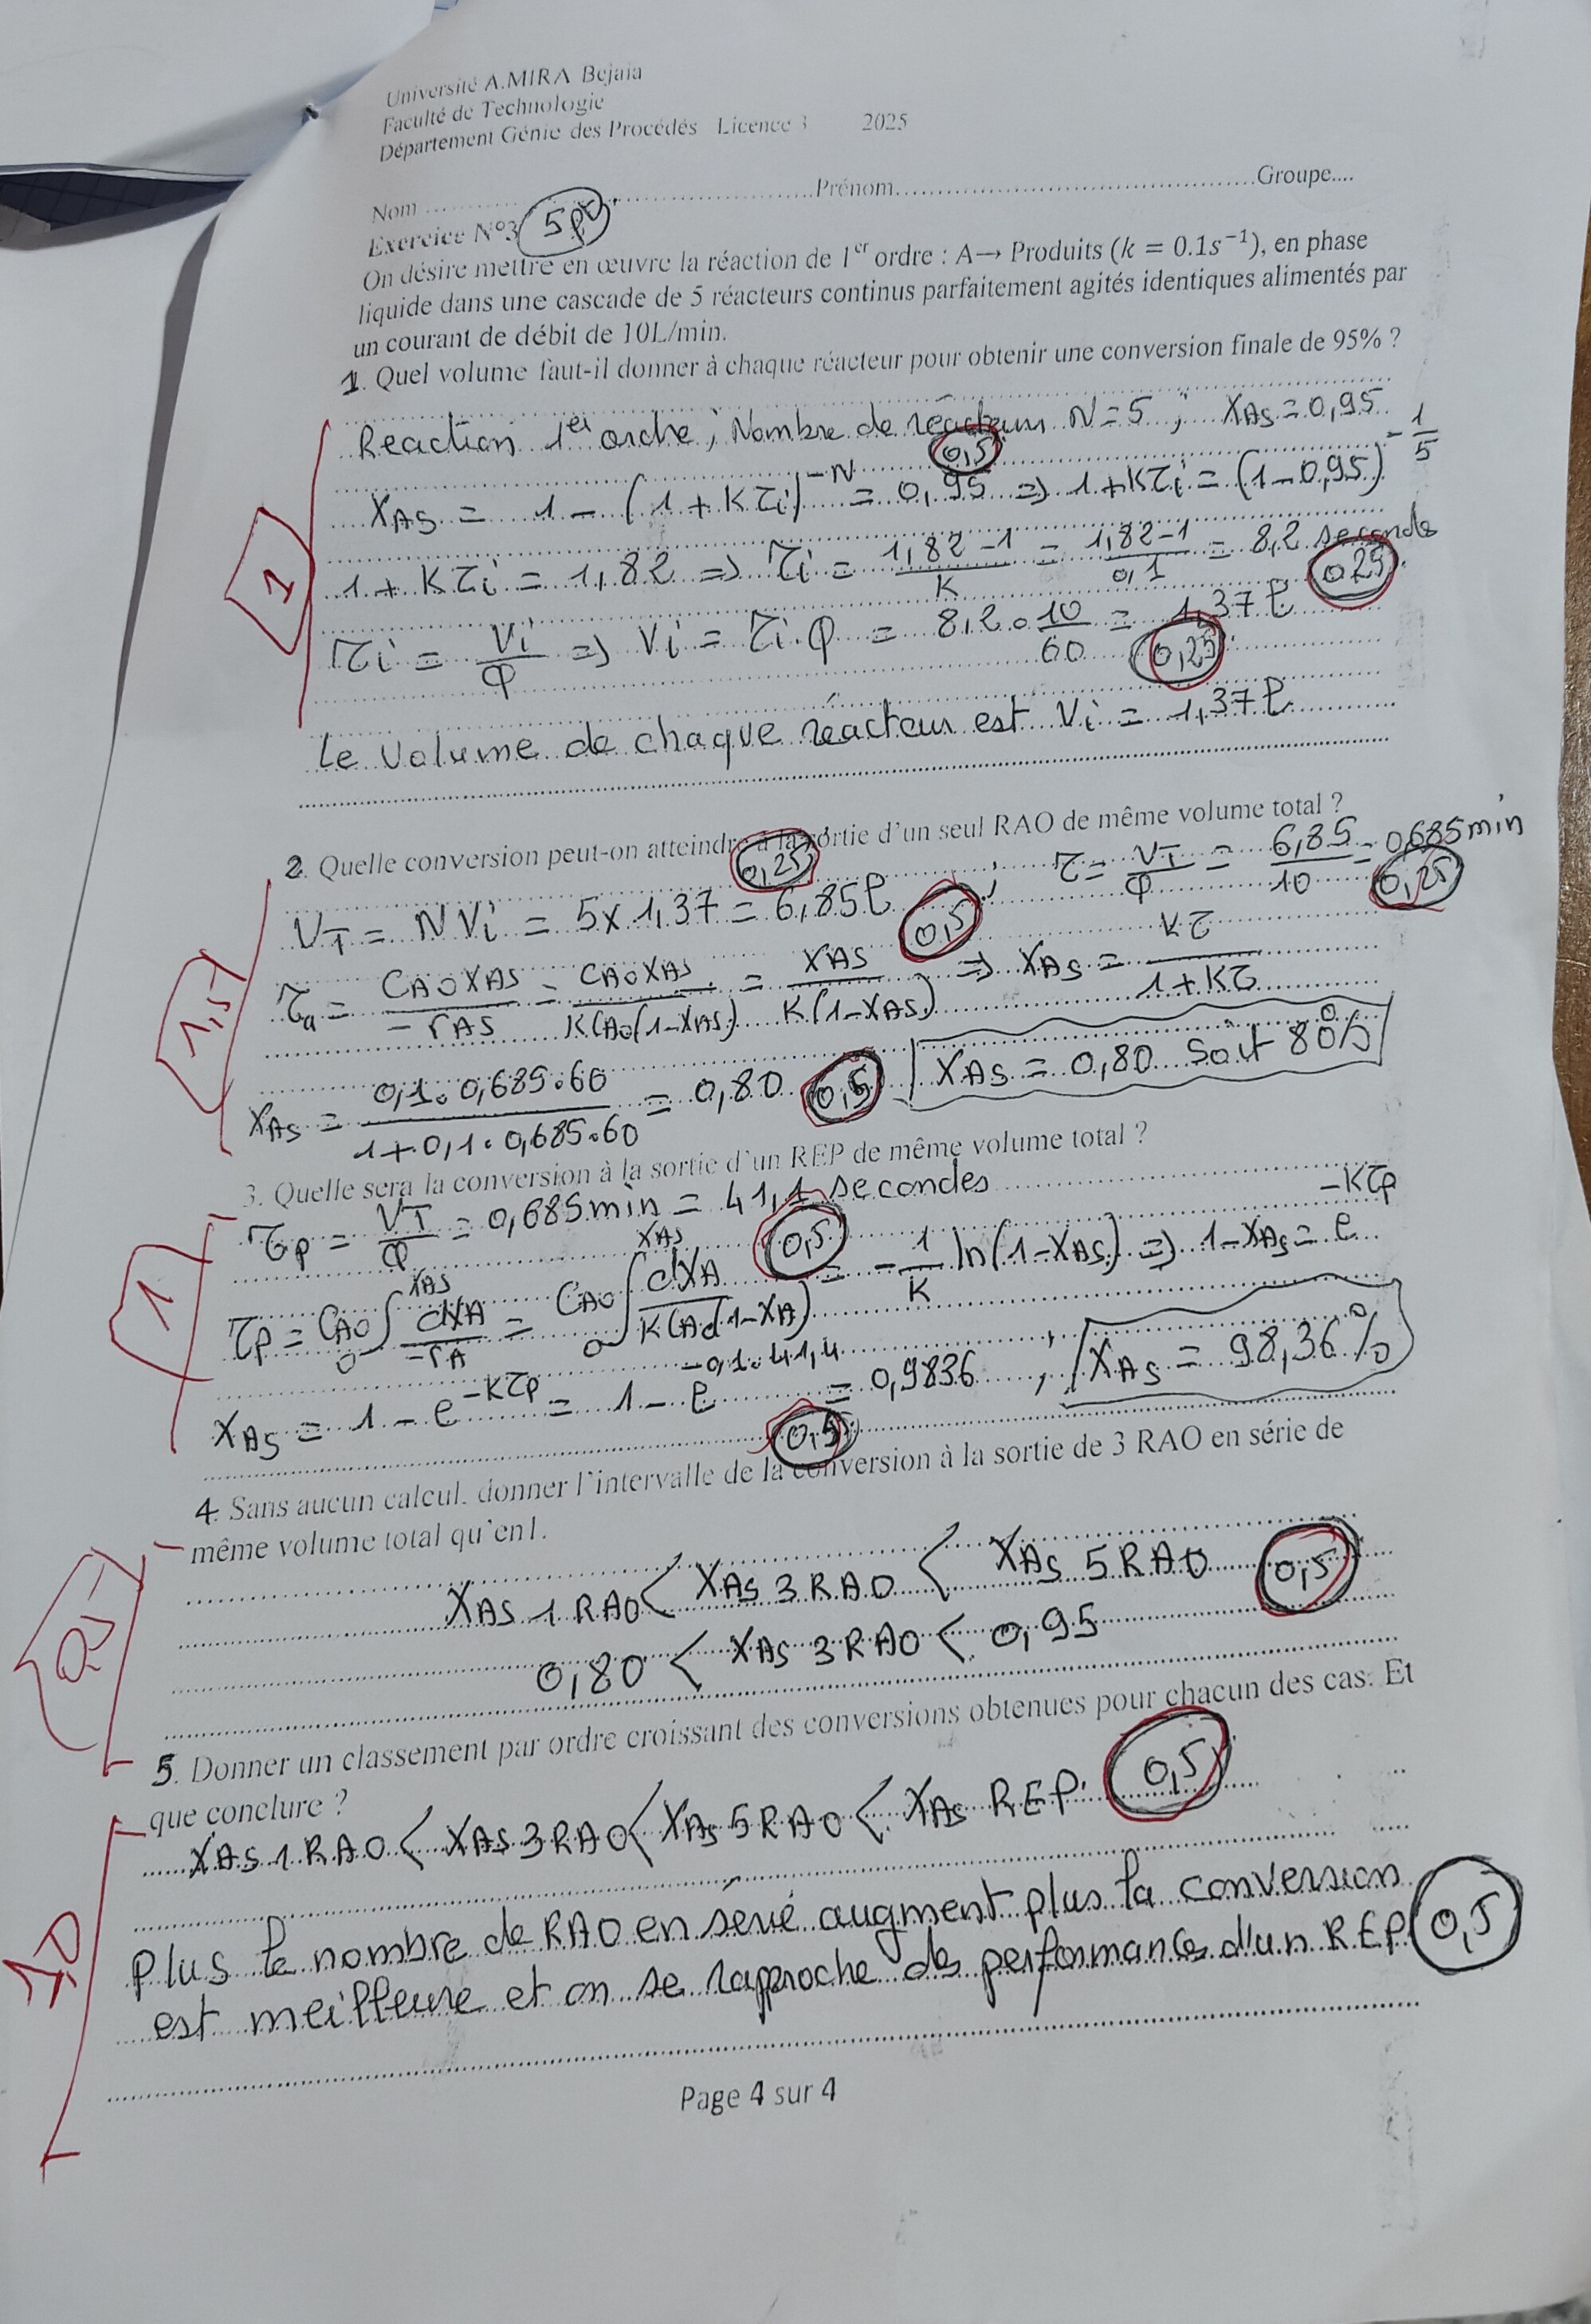 Université A.MIRA Bejaia
Faculté de Technologie
Département Génie des Procédés Licence 3 2025
Nom ..............................Prénom..............................Groupe....
Exercice N°3 5pt
On désire mettre en œuvre la réaction de 1er ordre : A→ Produits (k = 0.1s⁻¹), en phase
liquide dans une cascade de 5 réacteurs continus parfaitement agités identiques alimentés par
un courant de débit de 10L/min.
1. Quel volume faut-il donner à chaque réacteur pour obtenir une conversion finale de 95% ?
Reaction 1er ordre, Nombre de réacteurs N = 5 ; XAS = 0,95
0,5
XAS = 1 - (1 + Kτi)^-N = 0,95 => 1+Kτi = (1-0,95)^-1/5
1
1 + Kτi = 1,82 => τi = (1,82-1)/K = (1,82-1)/0,1 = 8,2 seconde
0,25
τi = Vi/Q => Vi = τi.Q = 8,2 . 10/60 = 1,37 l
0,25
Le volume de chaque réacteur est Vi = 1,37 l
2. Quelle conversion peut-on atteindre à la sortie d'un seul RAO de même volume total ?
0,25
VT = N Vi = 5x1,37 = 6,85 l ; τ = VT/Q = 6,85/10 = 0,685 min
0,5 0,25
τa = CA0 XAS/-rAS = CA0 XAS/KCA0(1-XAS) = XAS/K(1-XAS) => XAS = Kτ/1+Kτ
1,5
XAS = 0,1.0,685.60/1+0,1.0,685.60 = 0,80 0,5 XAS = 0,80 soit 80%
3. Quelle sera la conversion à la sortie d'un REP de même volume total ?
τp = VT/Q = 0,685 min = 41,1 secondes
0,5
1
τp = CA0 ∫0^XAS dXA/-rA = CA0 ∫0^XAS dXA/KCA0(1-XA) = -1/K ln(1-XAS) => 1-XAS = e^-Kτp
XAS = 1 - e^-Kτp = 1 - e^-0,1.41,1 = 0,9836 ; XAS = 98,36%
0,5
4. Sans aucun calcul, donner l'intervalle de la conversion à la sortie de 3 RAO en série de
même volume total qu'en1.
XAS 1 RAO < XAS 3 RAO < XAS 5 RAO 0,5
0,80 < XAS 3 RAO < 0,95
5. Donner un classement par ordre croissant des conversions obtenues pour chacun des cas. Et
que conclure ?
XAS 1 RAO < XAS 3 RAO < XAS 5 RAO < XAS REP. 0,5
Plus le nombre de RAO en série augment plus la conversion
est meilleure et on se rapproche des performances d'un REP 0,5
Page 4 sur 4